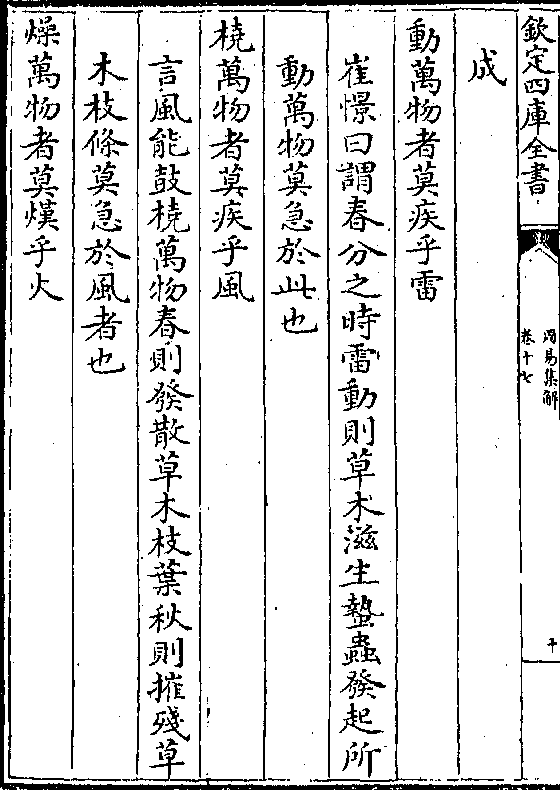 欽定四庫全書
周易集解
卷十七
十
成
動萬物者莫疾乎雷
崔憬曰謂春分之時雷動則草木滋生蟄蟲發起所
動萬物莫急於此也
橈萬物者莫疾乎風
言風能鼓橈萬物春則發散草木枝葉秋則摧殘草
木枝條莫急於風者也
燥萬物者莫熯乎火